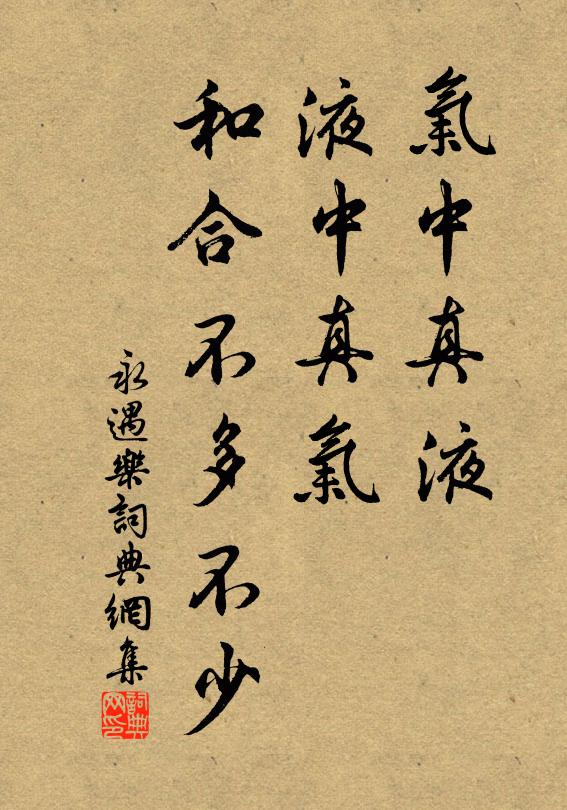 氣中真液
液中真氣
和合不多不少
永遇樂詞典網集
詞典
网印